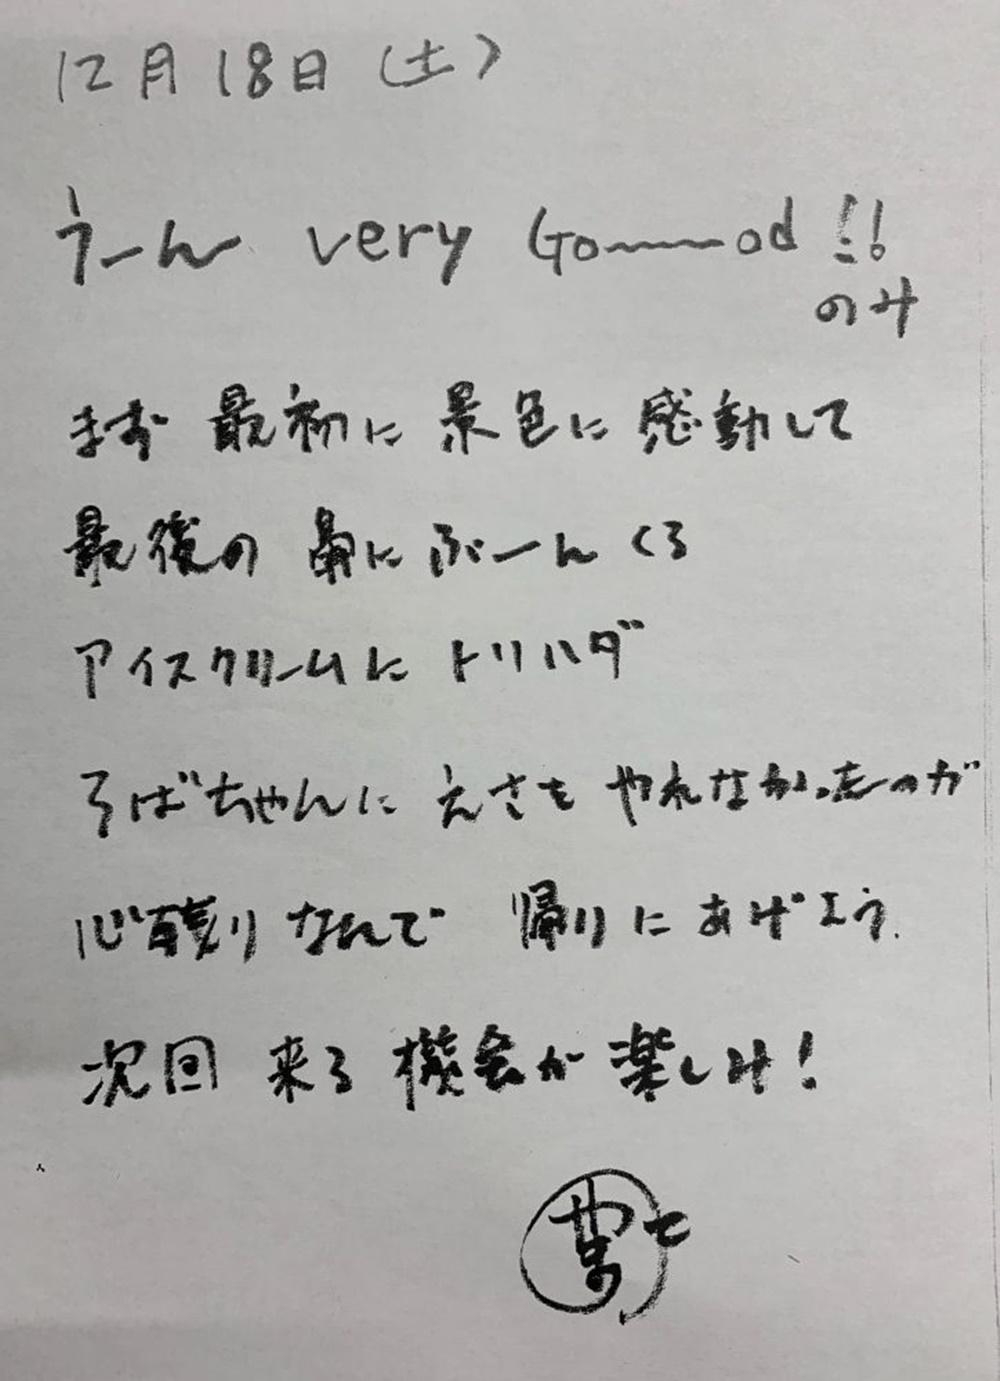 12月18日（土）
うーん very Go〜〜od !!
のみ
まず 最初に 景色に 感動して
最後の 鼻にぶーんくる
アイスクリームに トリハダ
そばちゃんに えさを やれなかったのが
心残りなんで 帰りにあげよう.
次回 来る 機会が 楽しみ!